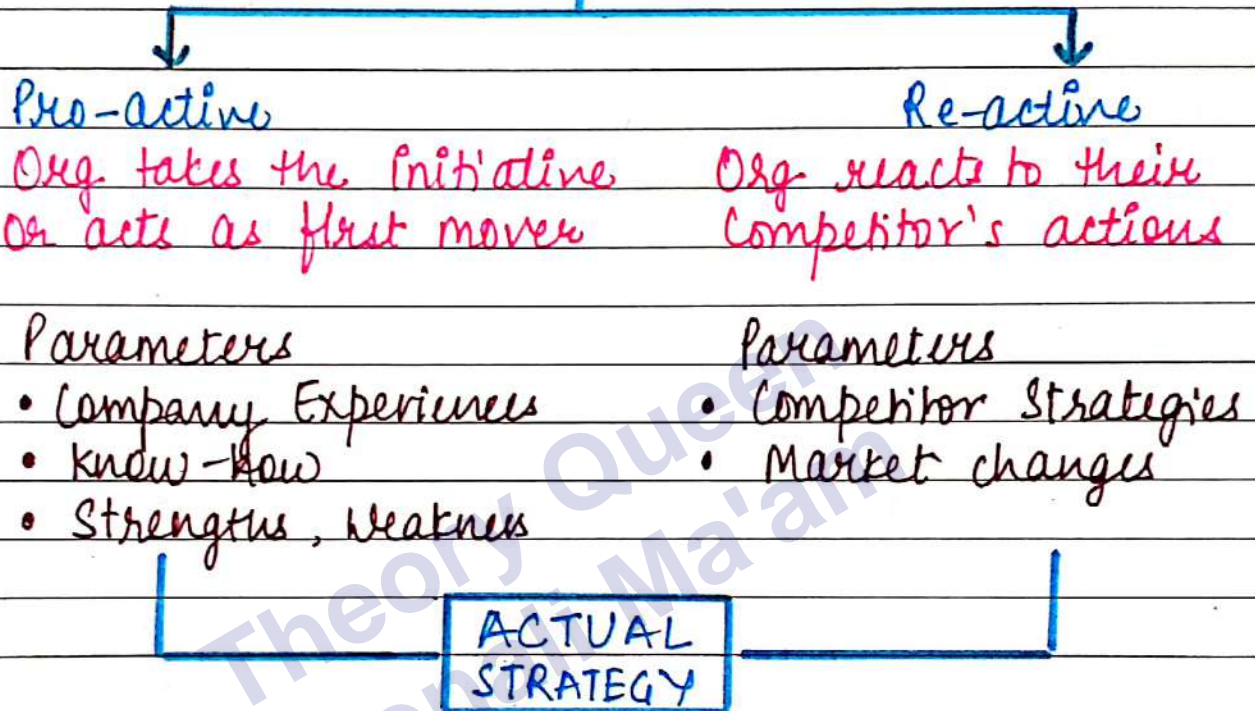 Pro-active
Org takes the initiative
or acts as first mover
Parameters
• Company Experiences
• Know-How
• Strengths, Weakness
Re-active
Org reacts to their
Competitor's actions
Parameters
• Competitor Strategies
• Market changes
ACTUAL
STRATEGY
Theory Queen
Ma'am